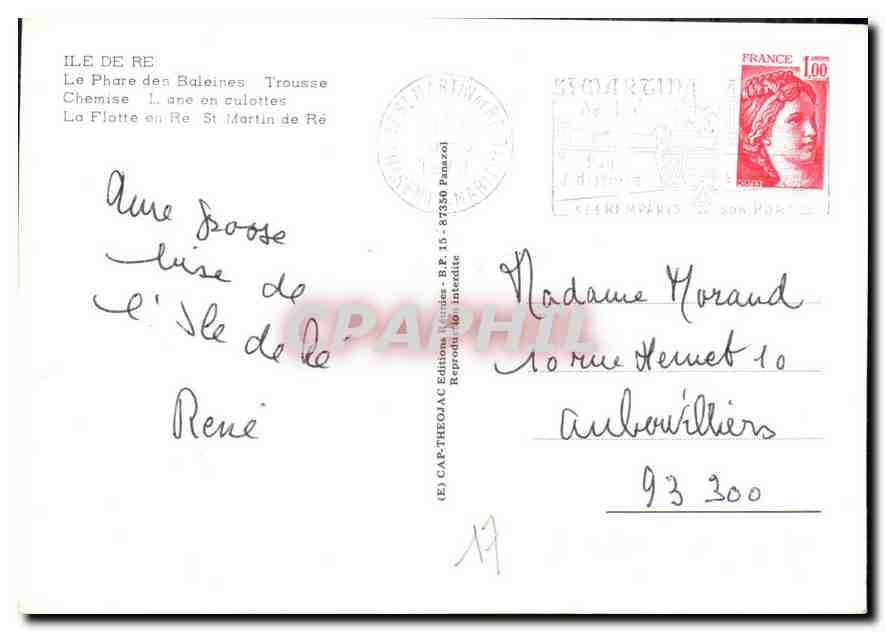 ILE DE RE
Le Phare des Baleines Trousse
Chemise L ane en culottes
La Flotte en Ré St Martin de Ré
Une grosse
bise de
l'Ile de Ré
René
(E) CAP-THEOJAC Editions Réunies - B.P. 15 - 87350 Panazol
Reproduction interdite
17
ST MARTIN DE RE
ST MARTIN
de
SES REMPARTS son PORT
FRANCE 1,00
Madame Morand
10 rue Hemet 10
Aubervilliers
93 300
CPAPHIL